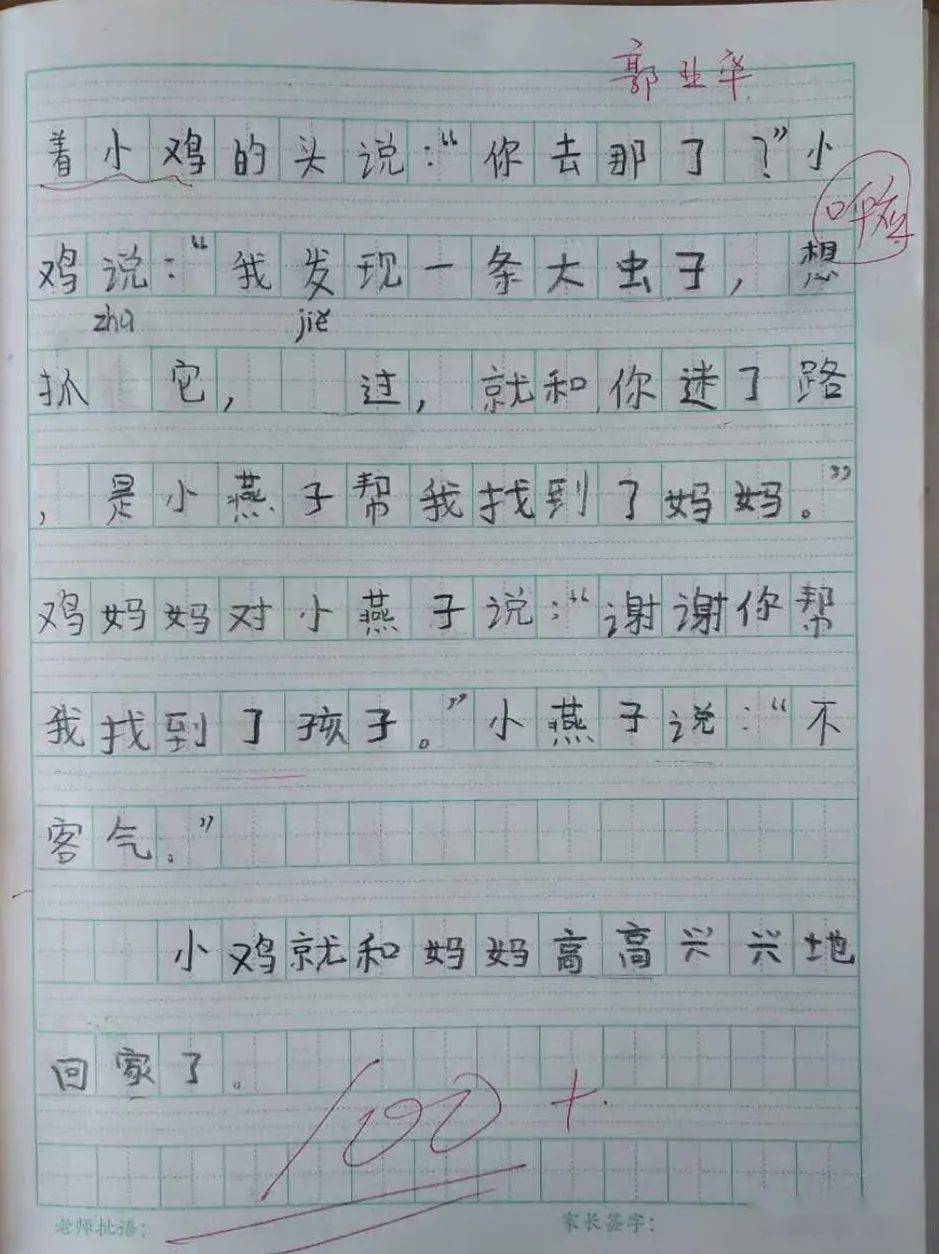 郭业华
着小鸡的头说：“你去那了？”小
鸡说：“我发现一条大虫子，想
zhu jie
抓 它， 过，就和你迷了路
，是小燕子帮我找到了妈妈。”
鸡妈妈对小燕子说：“谢谢你帮
我找到了孩子。”小燕子说：“不
客气。”
小鸡就和妈妈高高兴兴地
回家了。
100+
老师批语：
家长签字：